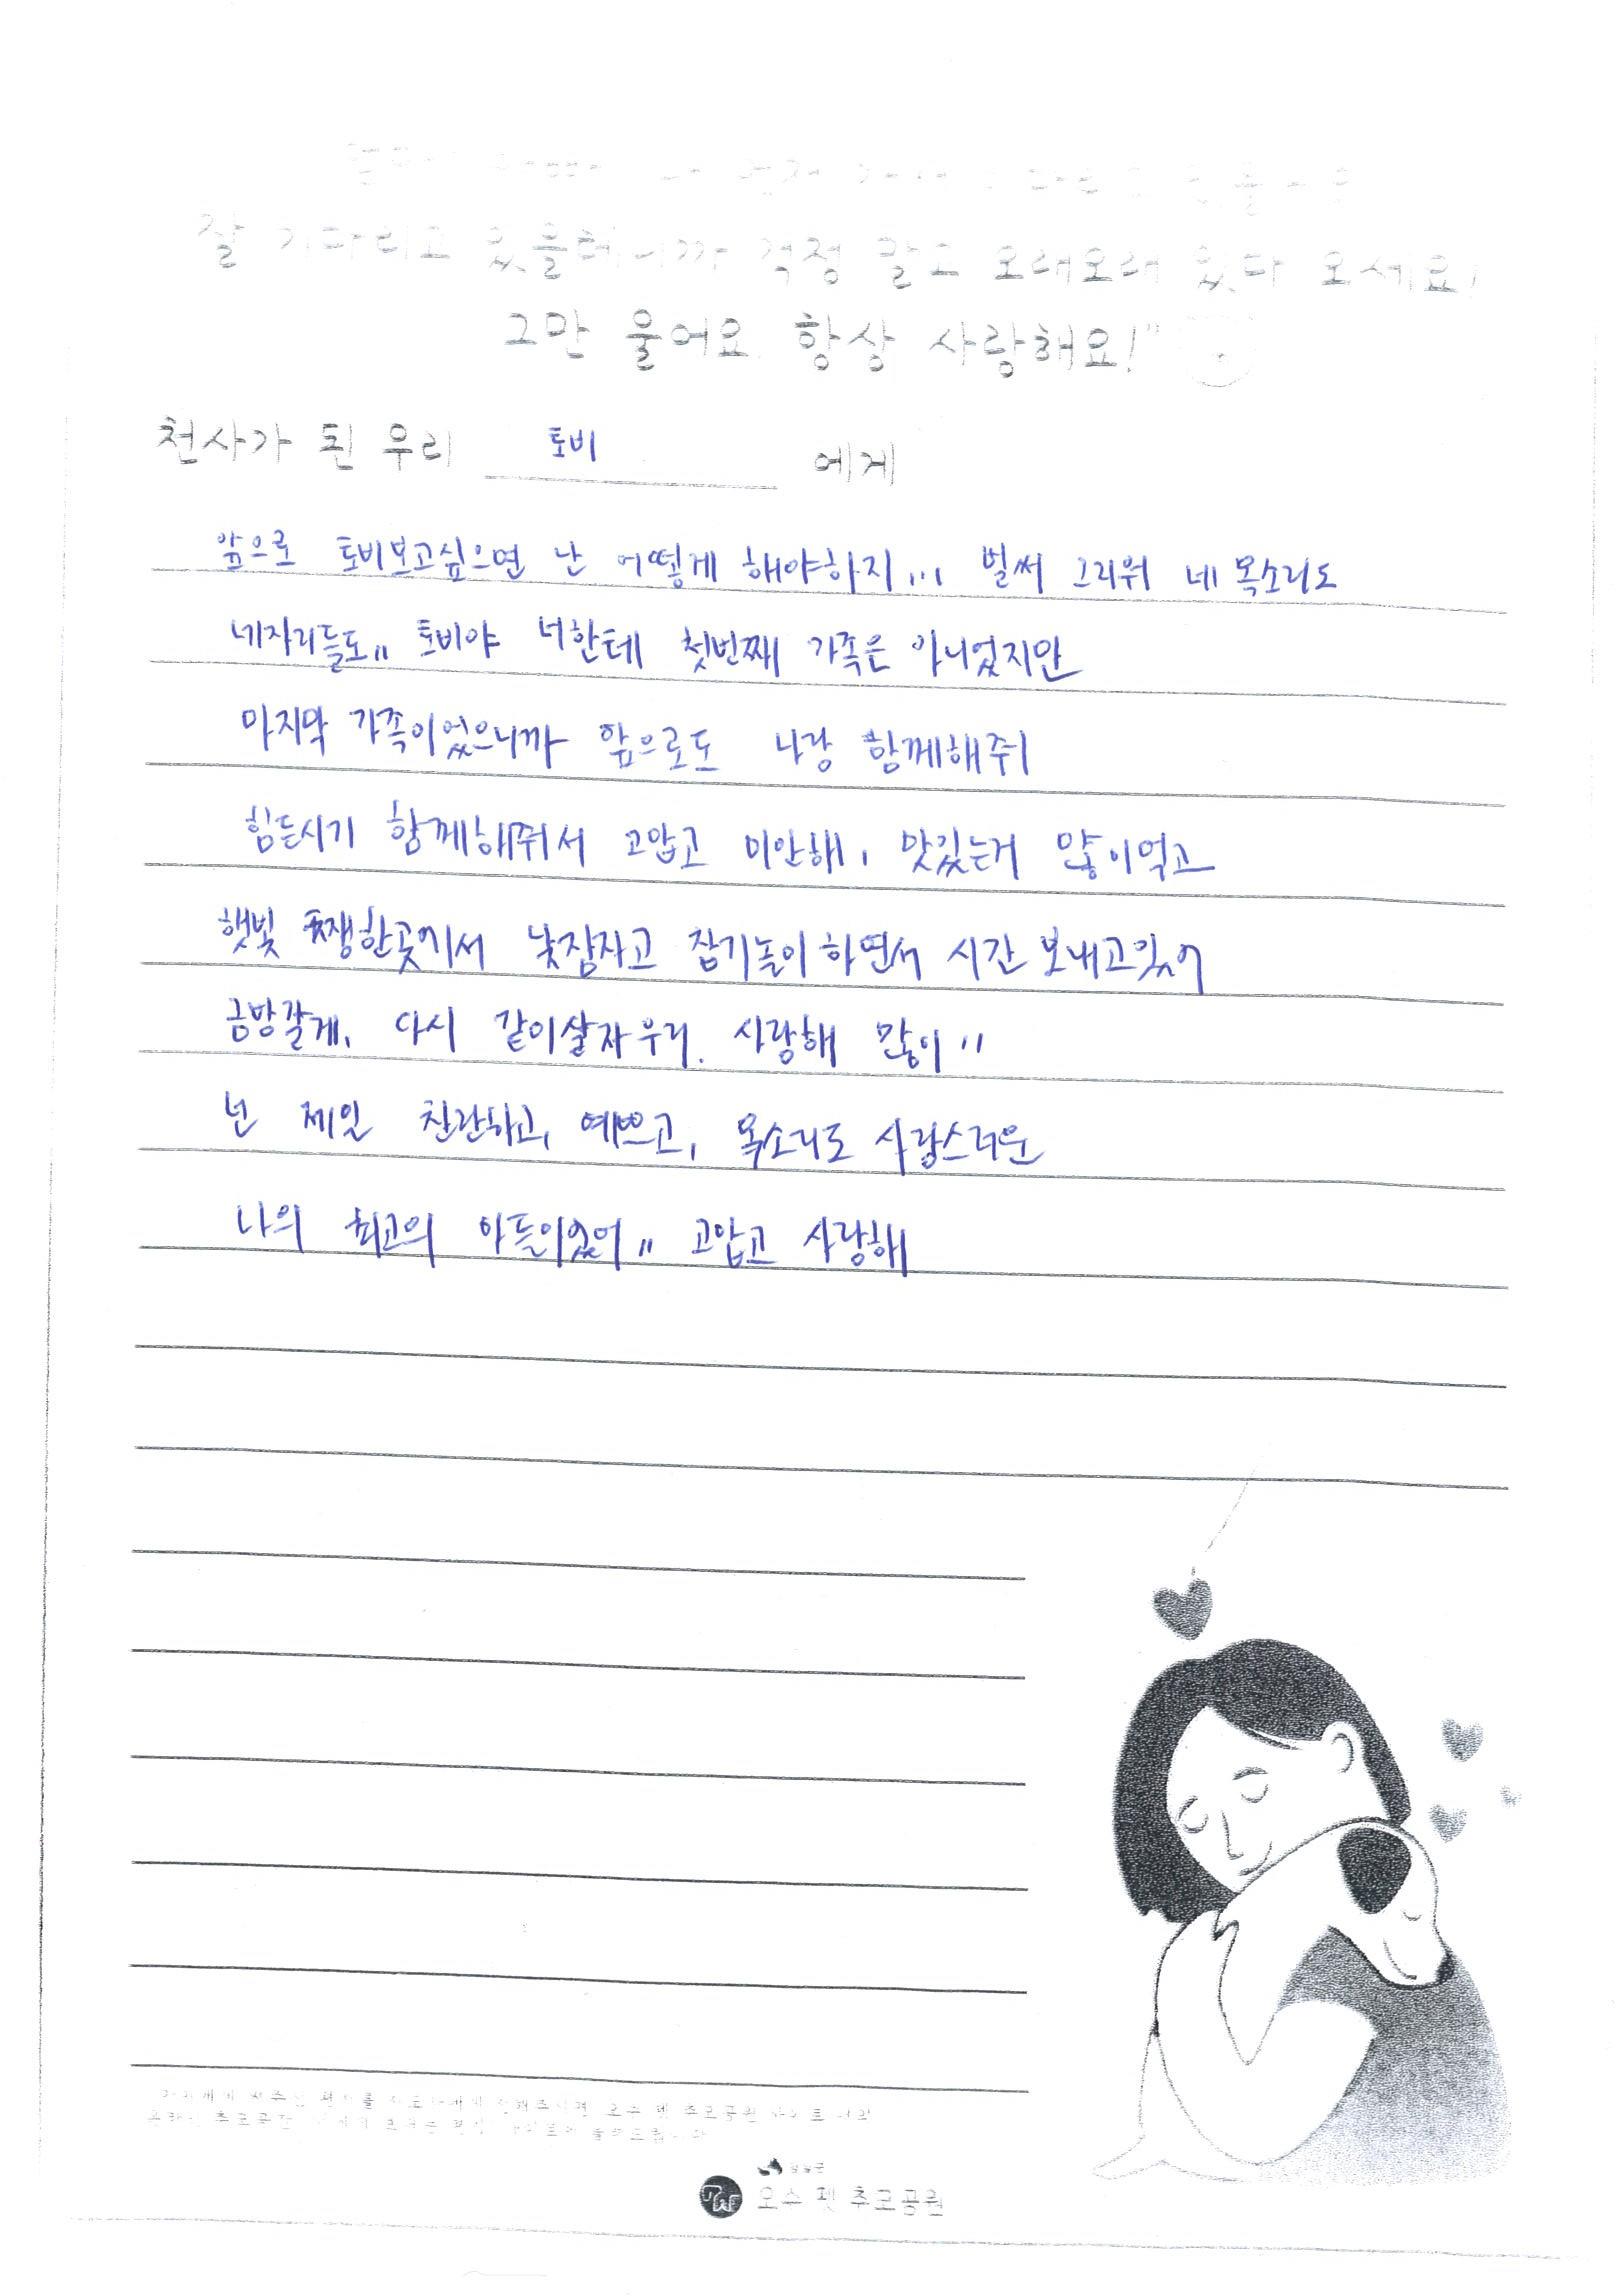 잘 기다리고 있을테니까 걱정 말고 오래오래 있다 오세요!
그만 울어요 항상 사랑해요!"
천사가 된 우리 토비 에게
앞으로 토비보고싶으면 난 어떻게 해야하지... 벌써 그리워 네 목소리도
네자리들도,, 토비야 너한테 첫번째 가족은 아니었지만
마지막 가족이었으니까 앞으로도 나랑 함께해줘
힘든시기 함께해줘서 고맙고 미안해, 맛있는거 많이먹고
햇빛 쨍한곳에서 낮잠자고 잡기놀이하면서 시간 보내고있어
금방갈게, 다시 같이살자우리. 사랑해 많이,,
넌 제일 찬란하고, 예쁘고, 목소리도 사랑스러운
나의 최고의 아들이었어,, 고맙고 사랑해
오수 펫 추모공원